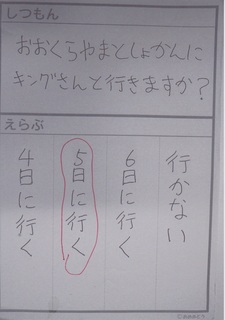 しつもん
おおくらやまとしょかんに
キングさんと行きますか?
えらぶ
行かない
6日に行く
5日に行く
4日に行く